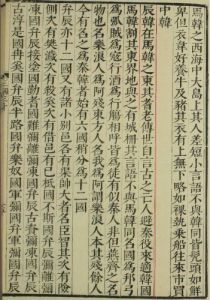 馬韓之西海中大島上其人差短小言語不與韓同皆髡頭如鮮
卑但衣韋好養牛及豬其衣有上無下略如裸勢乘船往來市買
中韓
辰韓在馬韓之東其耆老傳世自言古之亡人避秦役來適韓國
馬韓割其東界地與之有城柵其言語不與馬韓同名國為邦弓
為弧賊為寇行酒為行觴相呼皆為徒有似秦人非但燕齊之名
物也名樂浪人為阿殘東方人名我為阿謂樂浪人本其殘餘人
今有名之為秦韓者始有六國稍分為十二國
弁辰亦十二國又有諸小別邑各有渠帥大者名臣智其次有險
側次有樊濊次有殺奚次有借邑有已柢國不斯國弁辰彌離彌
凍國弁辰接塗國勤耆國難彌離彌凍國弁辰古資彌凍國弁辰
古淳是國冉奚國弁辰半路國弁樂奴國軍彌國弁軍彌國弁辰